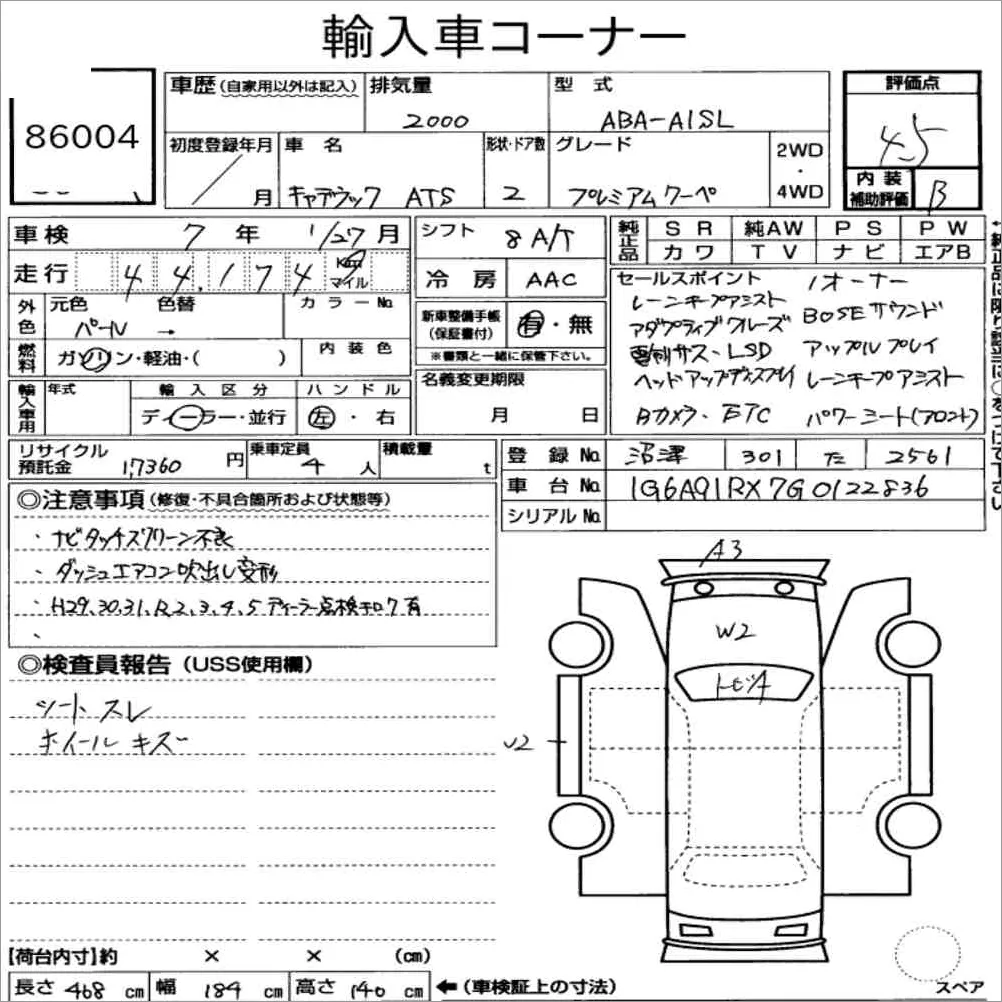 輸入車コーナー
86004
車歴(自家用以外は記入) 排気量 型式 評価点
2000 ABA-A1SL 4.5
初度登録年月 車名 形状・ドア数 グレード 2WD・4WD
/ 月 キャデラック ATS 2 プレミアムクーペ
内装補助評価 B
車検 7年 1/27月
走行 44,174 Km マイル
シフト 8 A/T
冷房 AAC
純正品 SR 純AW PS PW
カワ TV ナビ エアB
外色 元色 色替 カラーNo
パール →
燃料 ガソリン・軽油・( ) 内装色
新車整備手帳(保証書付) 有・無
※書類と一緒に保管下さい。
セールスポイント 1オーナー
レーンキープアシスト BOSEサウンド
アダプティブクルーズ
電制サス・LSD アップルプレイ
ヘッドアップディスプレイ レーンキープアシスト
Bカメラ・ETC パワーシート(フロント)
輸入車用 年式 輸入区分 ハンドル
ディーラー・並行 左・右
名義変更期限
月 日
リサイクル預託金 17360円 乗車定員 4人 積載量 t
登録No. 沼津 301 た 2561
車台No. 1G6A91RX7G0122836
シリアルNo.
◎注意事項(修復・不具合箇所および状態等)
・ナビタッチスクリーン不良
・ダッシュエアコン吹出し変形
・H29.30.31.R.2.3.4.5 ディーラー点検キロク有
・
◎検査員報告(USS使用欄)
シートスレ
ホイールキズ
A3
W2
トビツA
U2
【荷台内寸】約 × × (cm)
長さ 468 cm 幅 184 cm 高さ 140 cm ←(車検証上の寸法)
スペア